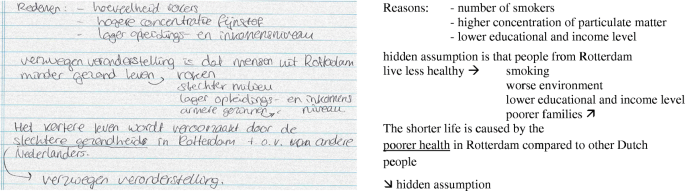 Redenen: - hoeveelheid rokers
- hogere concentratie fijnstof
- lager opleidings- en inkomensniveau
verzwegen veronderstelling is dat mensen uit Rotterdam
minder gezond leven → roken
slechter milieu
lager opleidings- en inkomens
armere gezinnen niveau
Het kortere leven wordt veroorzaakt door de
slechtere gezondheid in Rotterdam t.o.v. van andere
Nederlanders.
verzwegen veronderstelling.
Reasons: - number of smokers
- higher concentration of particulate matter
- lower educational and income level
hidden assumption is that people from Rotterdam
live less healthy → smoking
worse environment
lower educational and income level
poorer families ↗
The shorter life is caused by the
poorer health in Rotterdam compared to other Dutch
people
↘ hidden assumption